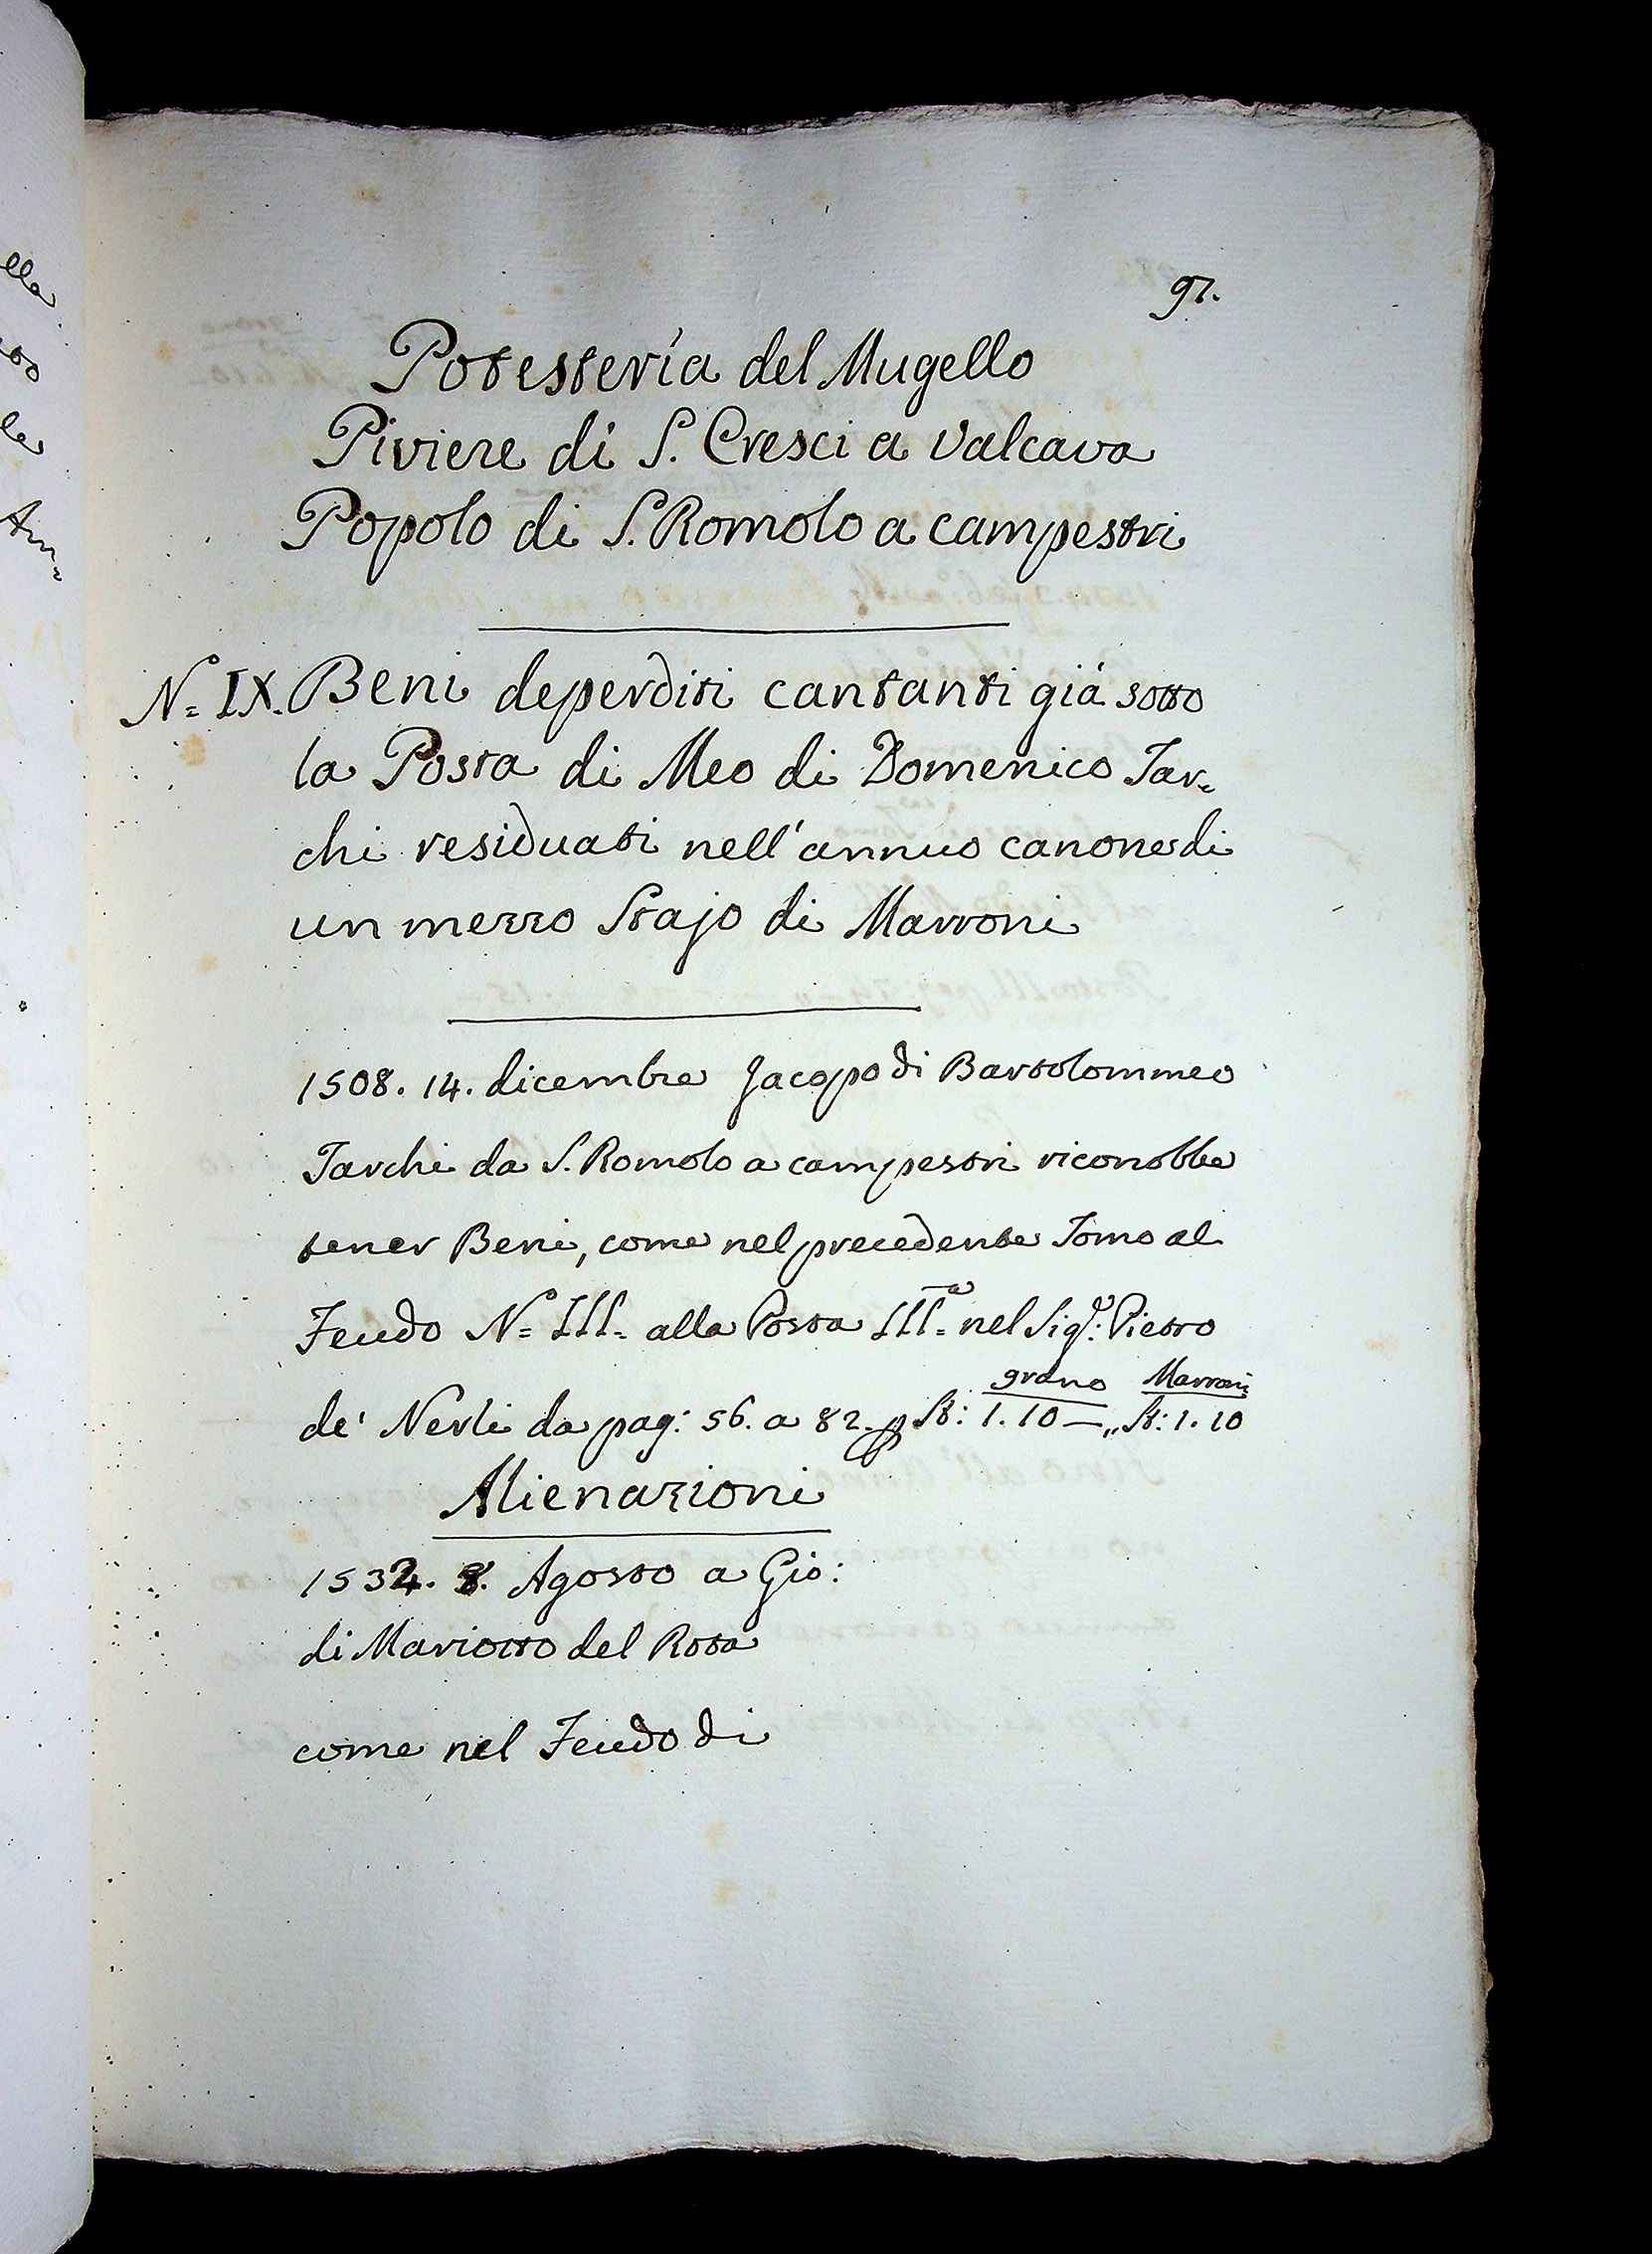 97.
Potesteria del Mugello
Piviere di S. Cresci a Valcava
Popolo di S. Romolo a campestri
N.° IX. Beni deperditi cantanti giá sotto
la Posta di Meo di Domenico Tar=
chi residuati nell'annuo canone di
un mezzo Stajo di Marroni
1508. 14. dicembre Jacopo di Bartolommeo
Tarchi da S. Romolo a campestri riconobbe
tener Beni, come nel precedente Tomo al
Feudo N.° III. alla Posta III.a nel Sig.e Pietro
grano Marroni
de' Nerli da pag: 56. a 82. p St: 1. 10 — „ St: 1. 10
Alienazioni
1532. 8. Agosto a Gio:
di Mariotto del Rota
come nel Feudo di